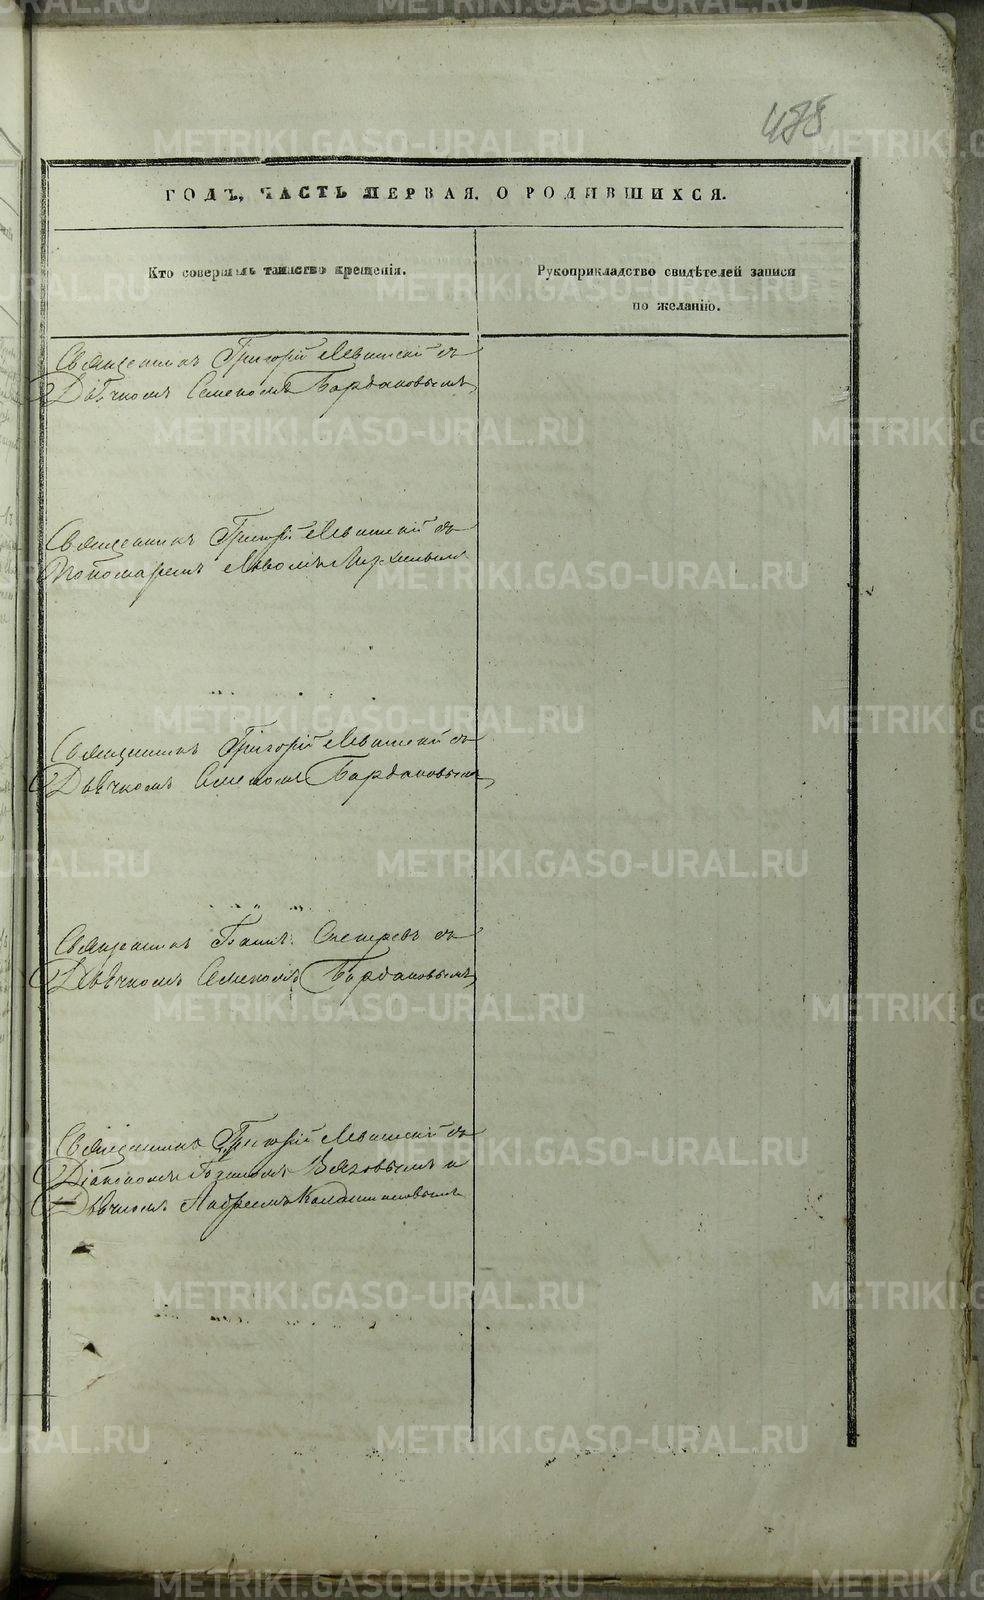 485
ГОДЪ, ЧАСТЬ ПЕРВАЯ, О РОДИВШИХСЯ.
Кто совершалъ таинство крещенія.
Рукоприкладство свидѣтелей записи
по желанію.
Священникъ Григорій Левитскій съ
Дьячкомъ Семеномъ Бардаковымъ
Священникъ Григорій Левитскій съ
Пономаремъ Львомъ
Священникъ Григорій Левитскій съ
Дьячкомъ Семеномъ Бардаковымъ
Священникъ съ
Дьячкомъ Семеномъ Бардаковымъ
Священникъ Григорій Левитскій съ
Діакономъ и
Дьячкомъ Андреемъ
METRIKI.GASO-URAL.RU